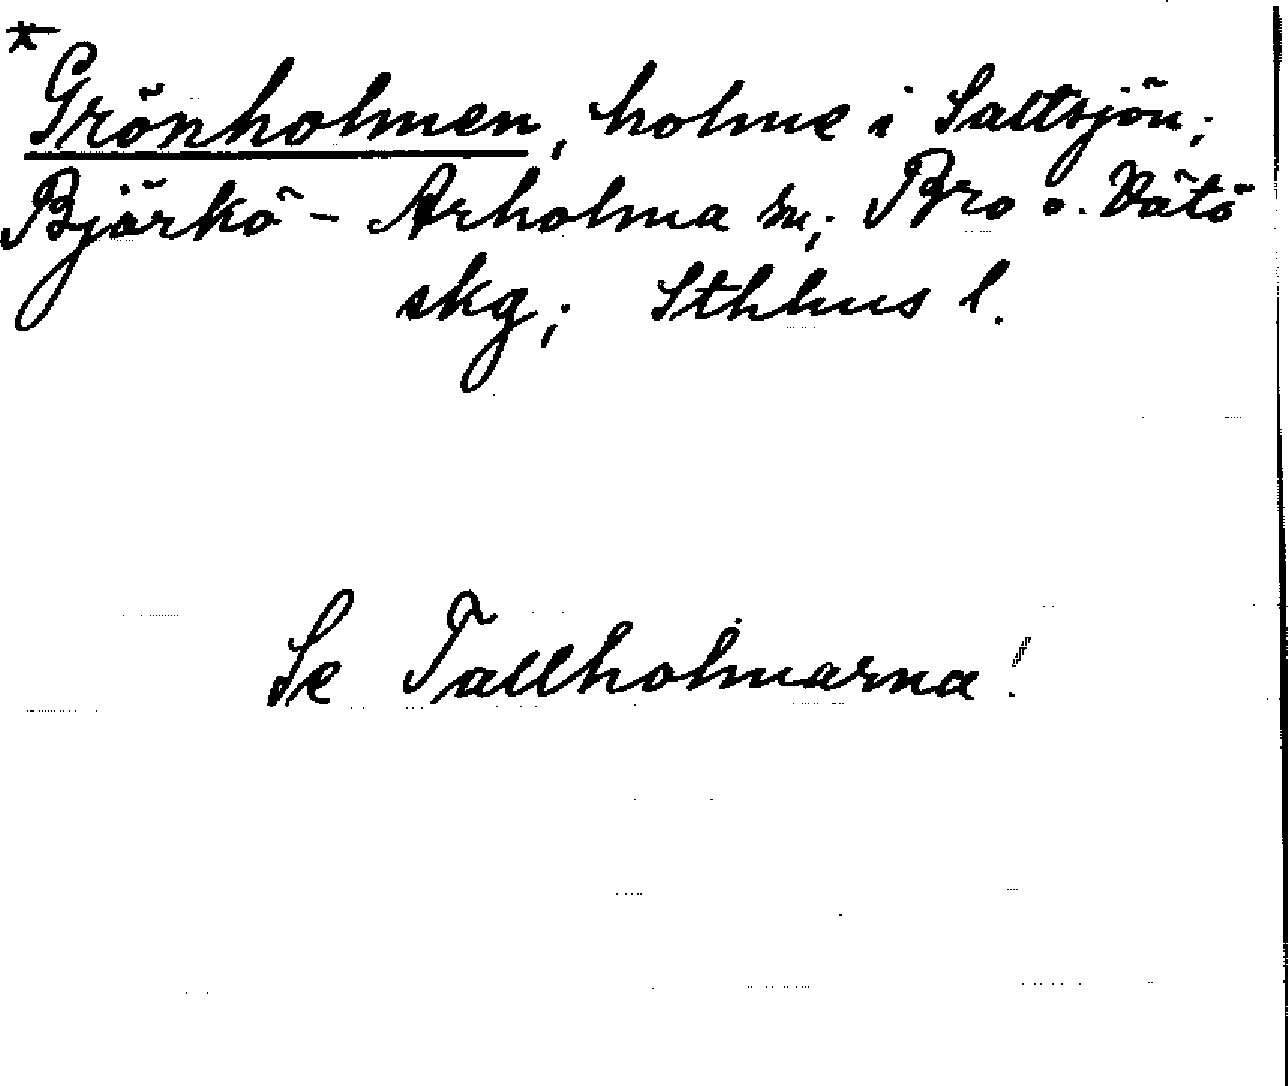 * Grönholmen, holme i Saltsjön;
Björkö-Arholma sn; Bro o. Vätö
skg; Sthlms l.
Se Tallholmarna!